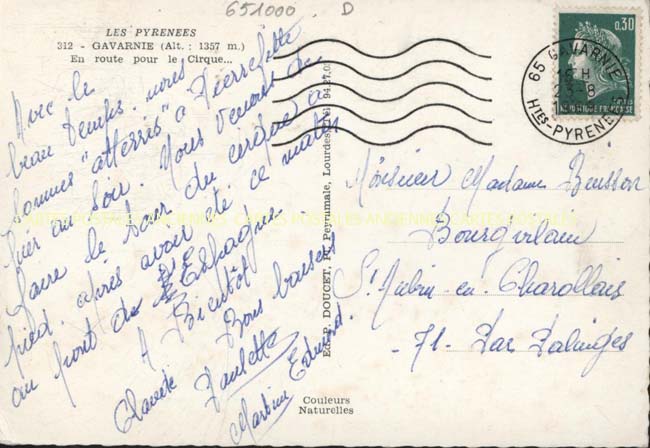 651000 D
LES PYRENEES
312 - GAVARNIE (Alt. : 1357 m.)
En route pour le Cirque...
Avec le
beau temps, nous
sommes "atterris" à Pierrefitte
hier au soir. Nous venons de
faire le tour du cirque à
pied, après avoir été ce matin
au pont d'Espagne.
A Bientôt
Bons baisers
Claude Paulette
Martine Edmond.
EDIT. P. DOUCET, Pl. Peyramale, Lourdes
Couleurs
Naturelles
0,30
REPUBLIQUE FRANÇAISE
65 GAVARNIE
18 H
23-8
Htes-PYRENEES
Monsieur Madame Buisson
Bourgvilain
St Aubin-en-Charollais
-71- Par Palinges
CARTES POSTALES ANCIENNES CARTES POSTALES ANCIENNES CARTES POSTALES